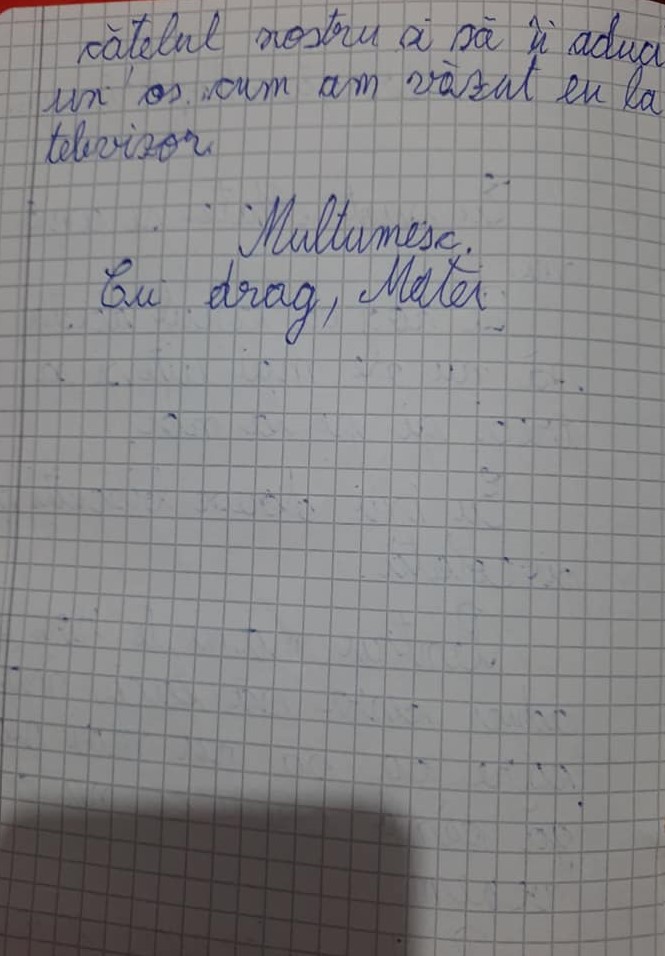 cătelul nostru a să îi aduci
un os cum am văzut eu la
televizor
Multumesc.
Cu drag, Matei